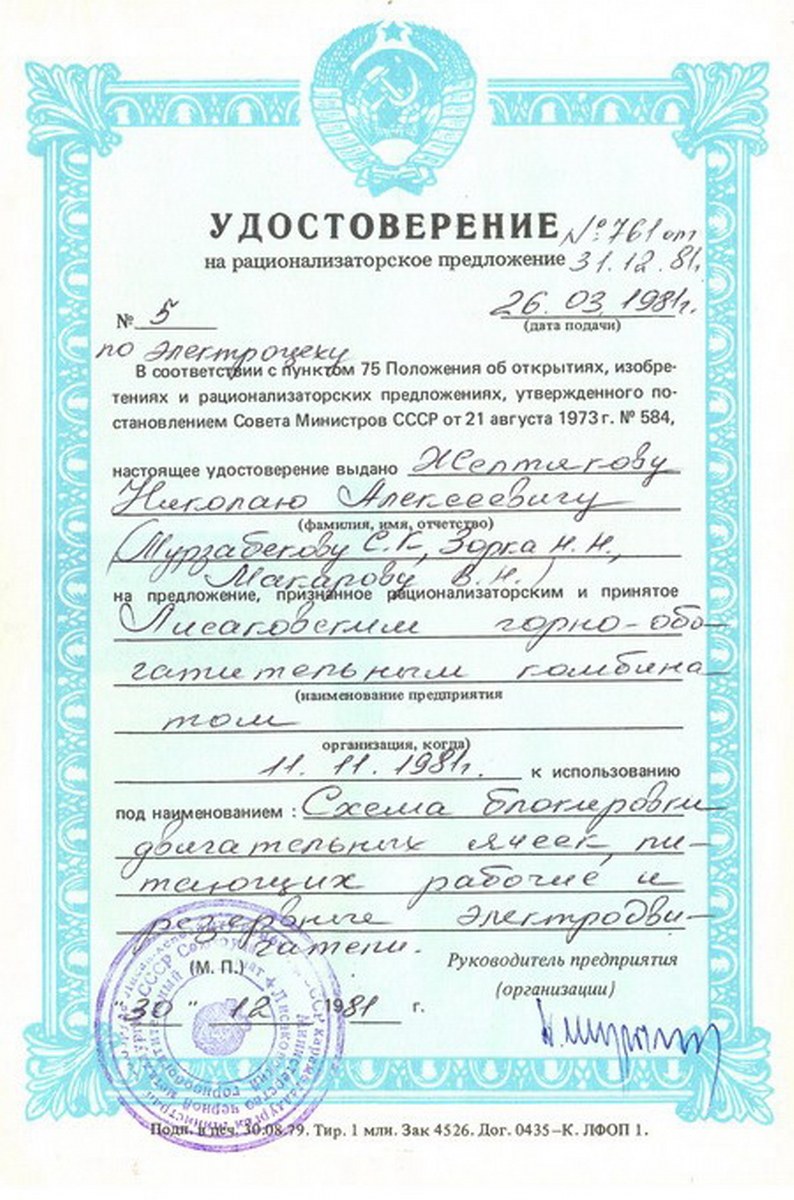 УДОСТОВЕРЕНИЕ № 761 от
на рационализаторское предложение 31.12.81г.
№ 5 26.03.1981г.
(дата подачи)
по электроцеху
В соответствии с пунктом 75 Положения об открытиях, изобре-
тениях и рационализаторских предложениях, утвержденного по-
становлением Совета Министров СССР от 21 августа 1973 г. № 584,
настоящее удостоверение выдано Желтякову
Николаю Алексеевичу
(фамилия, имя, отчетство)
(Мурзабекову С.К, Зорка Н.Н.,
Макарову В.Н.)
на предложение, признанное рационализаторским и принятое
Лисаковским горно-обо-
гатительным комбина
(наименование предприятия
том
организация, когда)
11.11.1981г. к использованию
под наименованием : Схема блокировки
двигательных ячеек, пи-
тающих рабочие и
резервные электродви-
гатели.
Руководитель предприятия
(М. П.)
(организации)
"30" 12 1981 г.
Подп. в печ. 30.08.79. Тир. 1 мли. Зак 4526. Дог. 0435—К. ЛФОП 1.